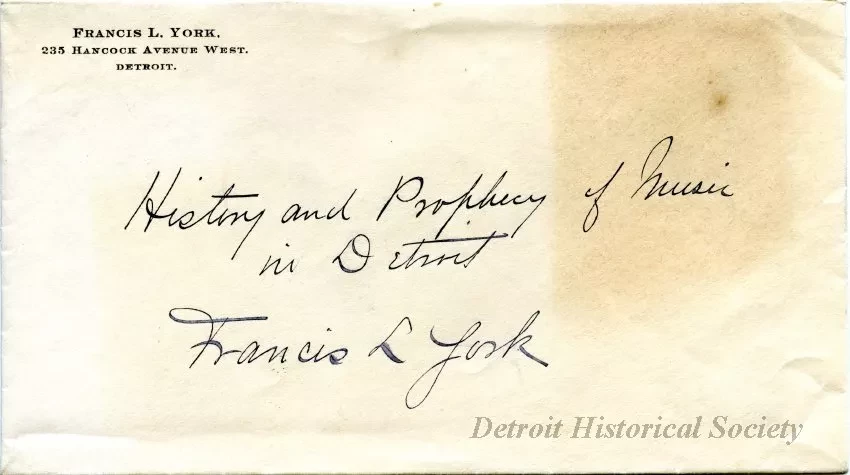 Francis L. York,
235 Hancock Avenue West.
Detroit.
History and Prophecy of Music
in Detroit
Francis L York
Detroit Historical Society